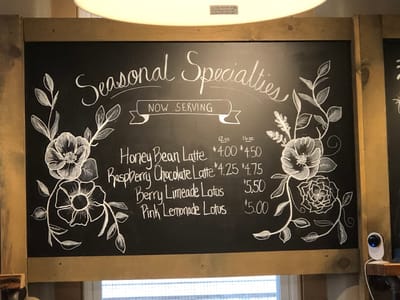 Seasonal Specialties
NOW SERVING
12oz 16oz
Honey Bean Latte $4.00 $4.50
Raspberry Chocolate Latte $4.25 $4.75
Berry Limeade Lotus $5.50
Pink Lemonade Lotus $5.00